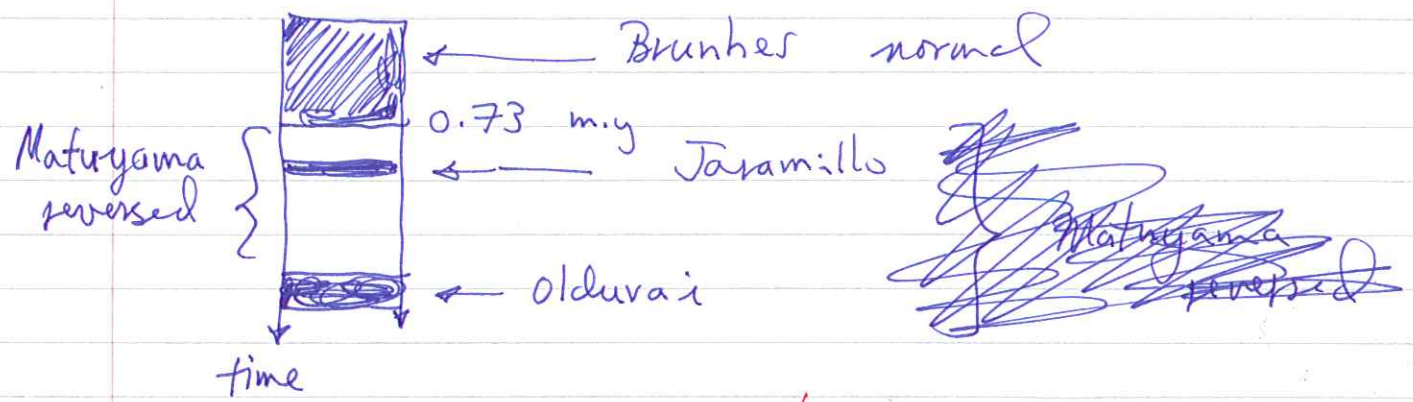 Brunhes normal
0.73 m.y
Matuyama
reversed
Jaramillo
Matuyama
reversed
Olduvai
time